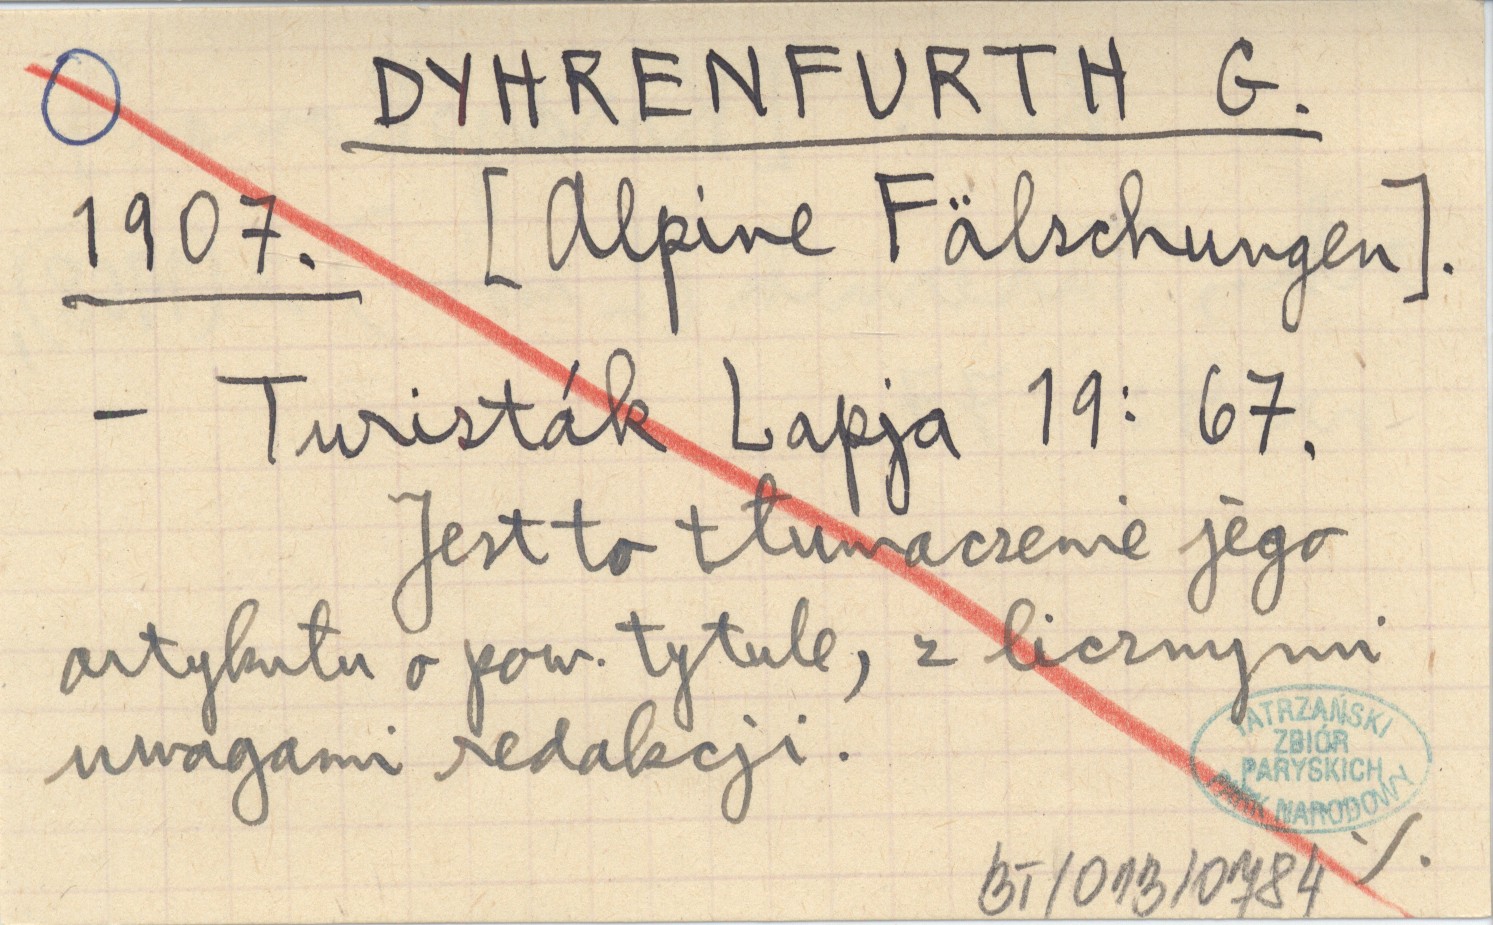 DYHRENFURTH G.
1907. [Alpine Fälschungen].
- Turisták Lapja 19: 67.
Jest to tłumaczenie jego
artykułu o pow. tytule, z licznymi
uwagami redakcji.
TATRZAŃSKI
ZBIÓR
PARYSKICH
PARK NARODOWY
BT/013/0784